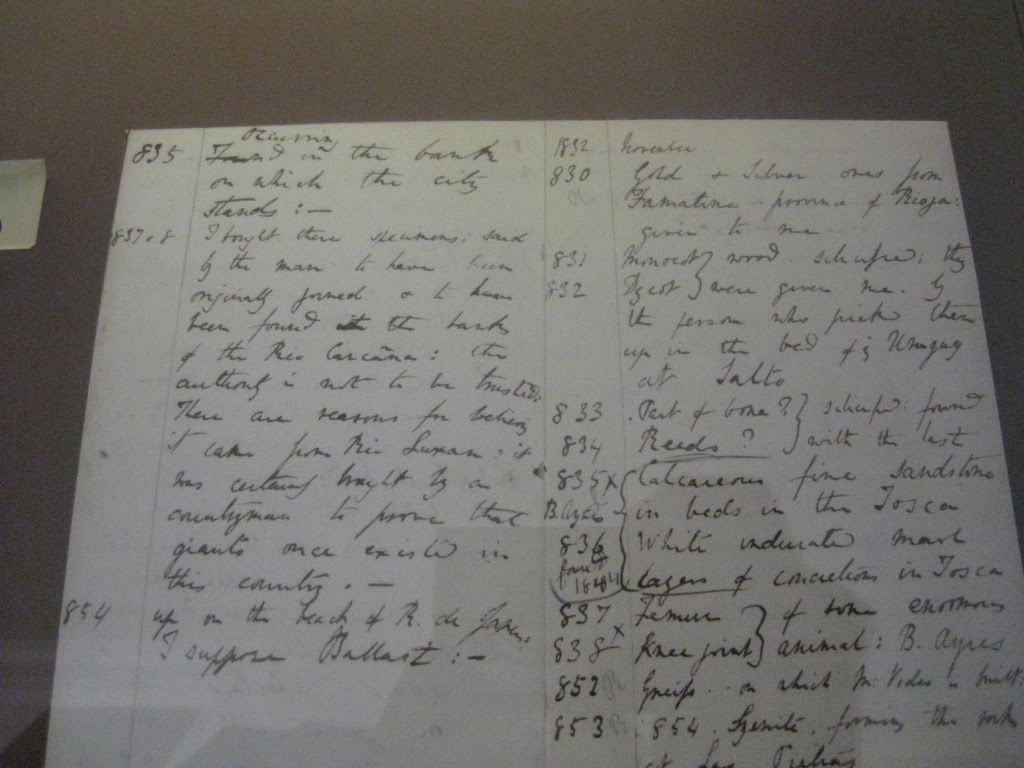 835 Found in the bank
Occurring
on which the city
stands : —
837 & 8 I bought these specimens : said
by the man to have been
originally joined & to have
been found in the banks
of the Rio Carcaña : the
authority is not to be trusted.
There are reasons for believing
it came from Rio Luxan : it
was certainly bought by a
countryman to prove that
giants once existed in
this country . —
854 up on the beach of R. de
I suppose Ballast : —
1832 November
830 Gold & Silver ores from
R Famatina province of Rioja :
given to me
831 Monocot } wood . silicified ; they
832 Dycot } were given me . by
the person who picked them
up in the bed of Uruguay
at Salto
833 . Part of bone ? } silicified : found
834 Reeds ? } with the last
835 X Calcareous fine sandstone
B. Ayres in beds in the Tosca
836 White indurate marl
1844 Layers of concretions in Tosca
837 Femur } of some enormous
838 X Knee joint } animal : B. Ayres
852 Gneiss . . on which M: Video is built :
853 . 854 . Syenite . forming the rock
at Las